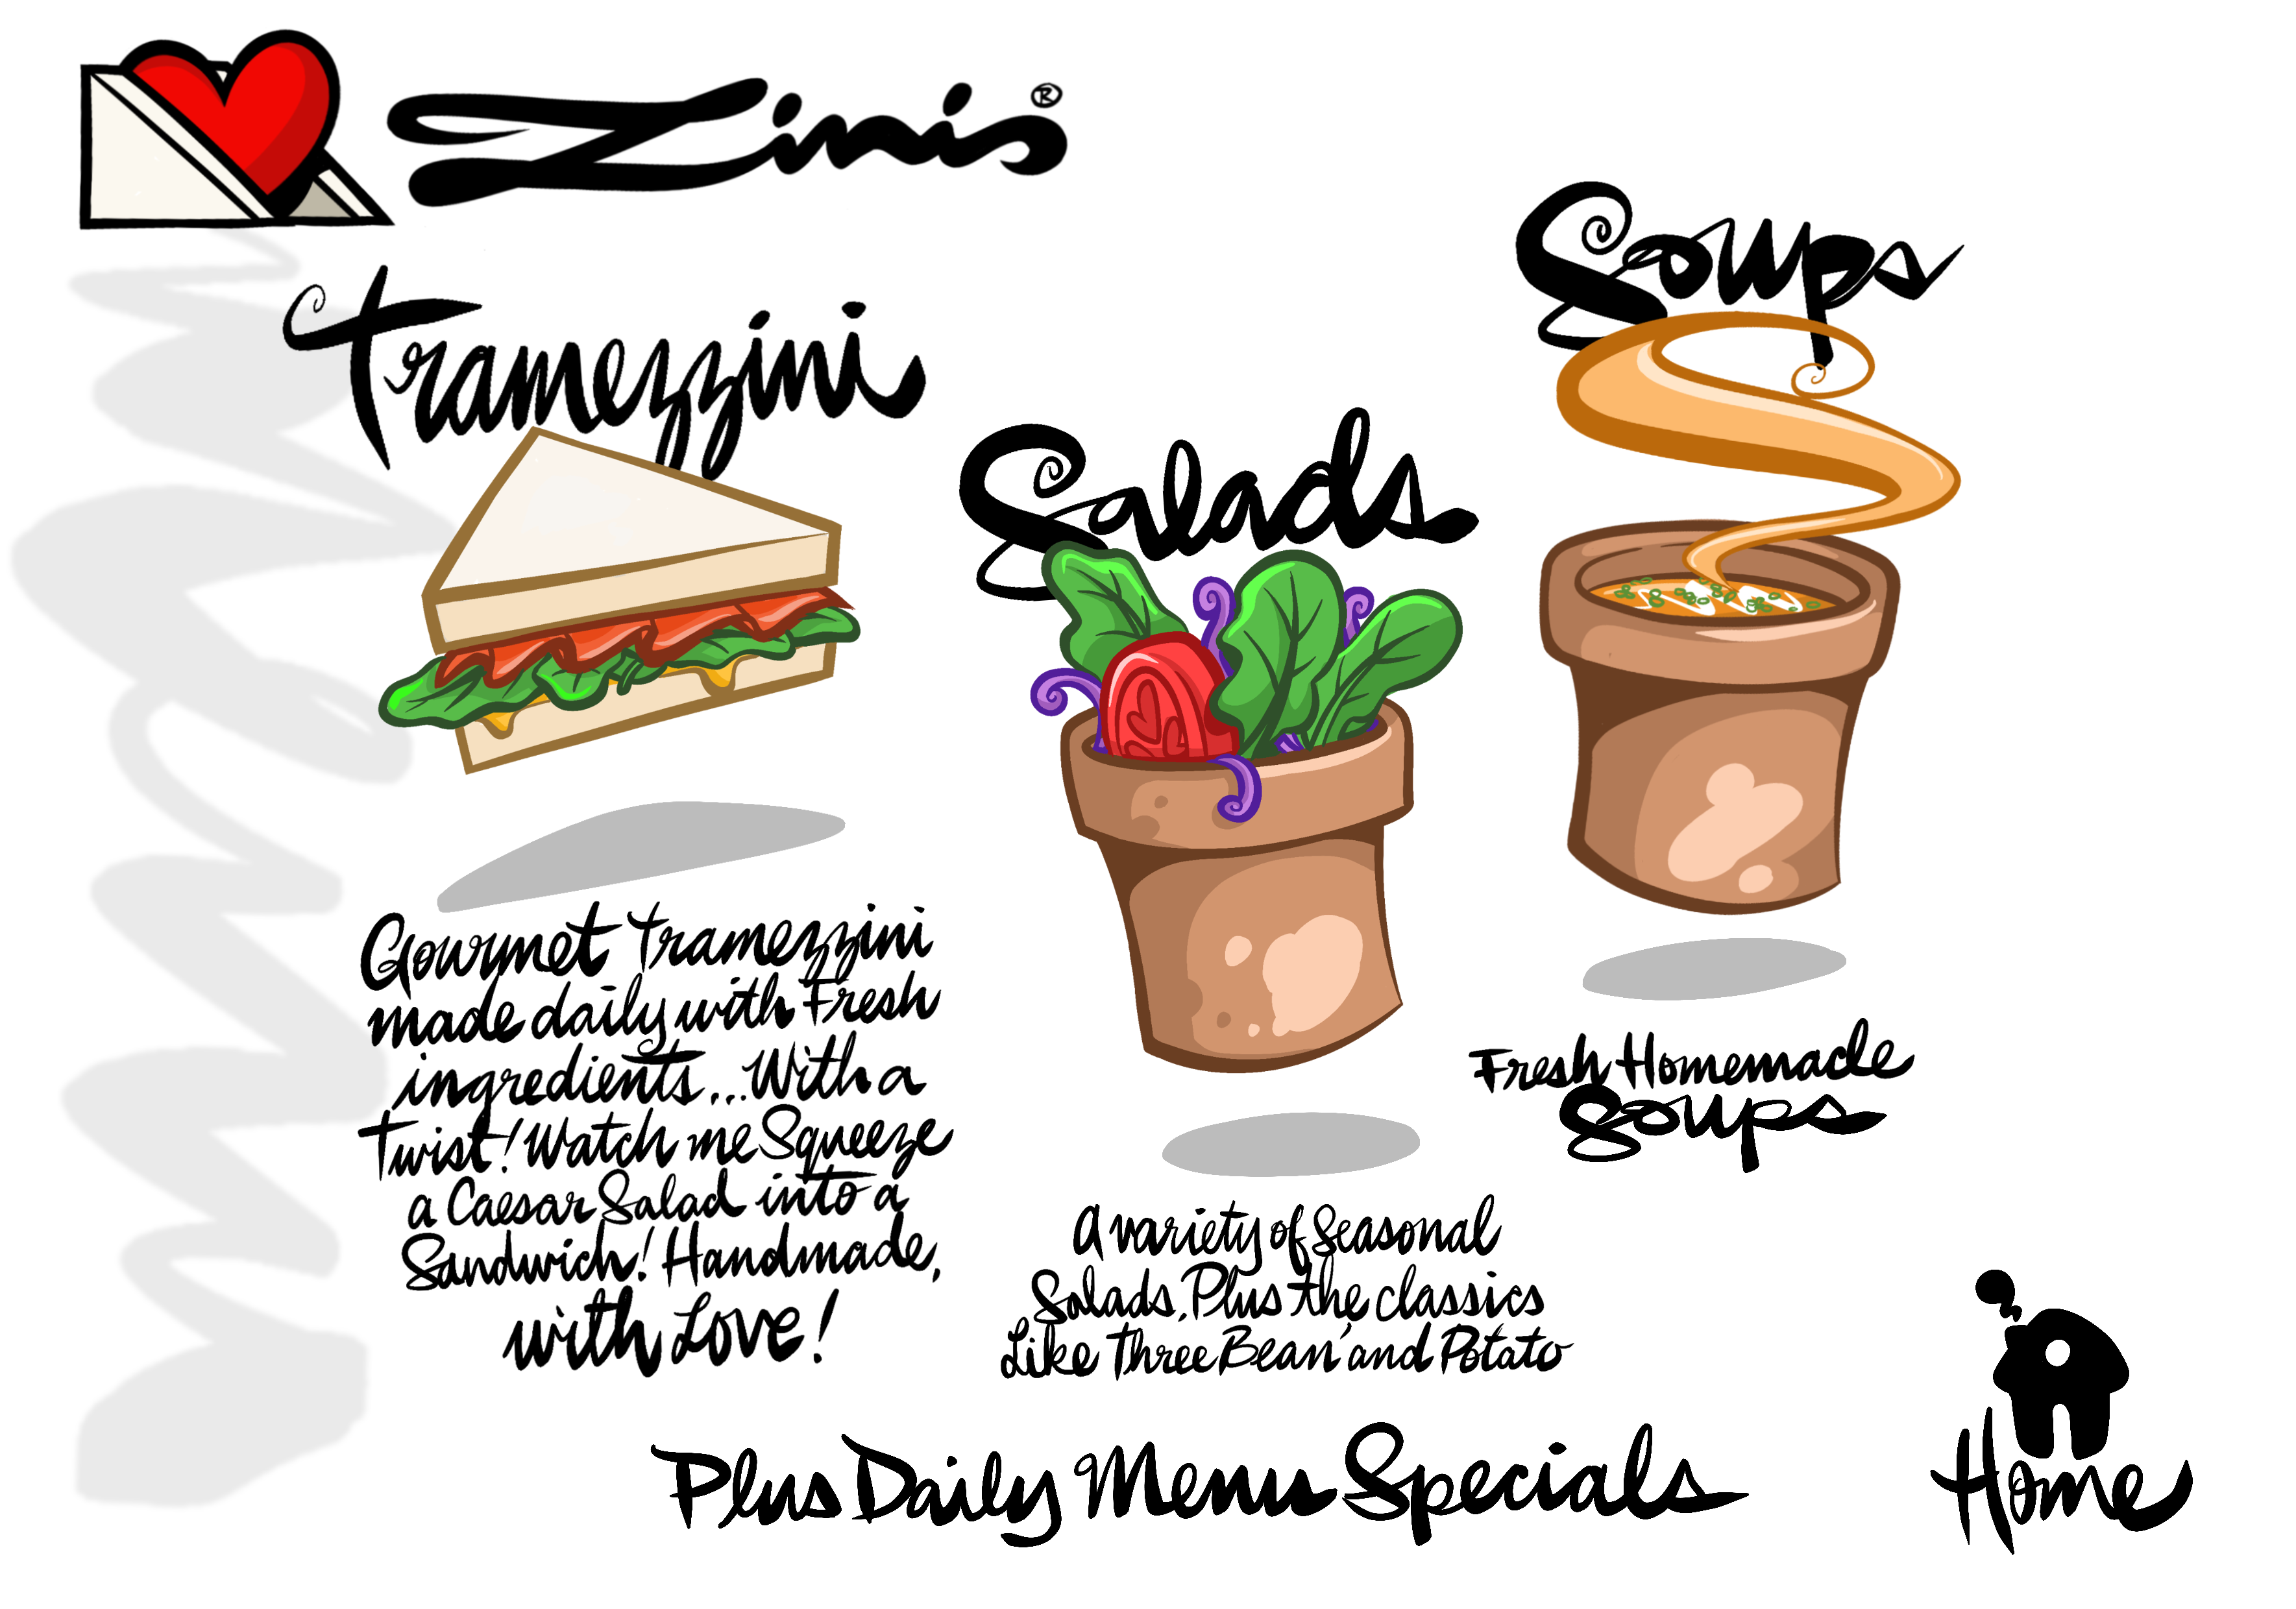 Zinis®
Tramezzini
Salads
Soups
Gourmet Tramezzini
made daily with Fresh
ingredients...With a
Twist! Watch me Squeeze
a Caesar Salad into a
Sandwich! Handmade,
with Love!
A variety of Seasonal
Salads, Plus the classics
Like Three Bean and Potato
Fresh Homemade
Soups
Plus Daily Menu Specials
Home